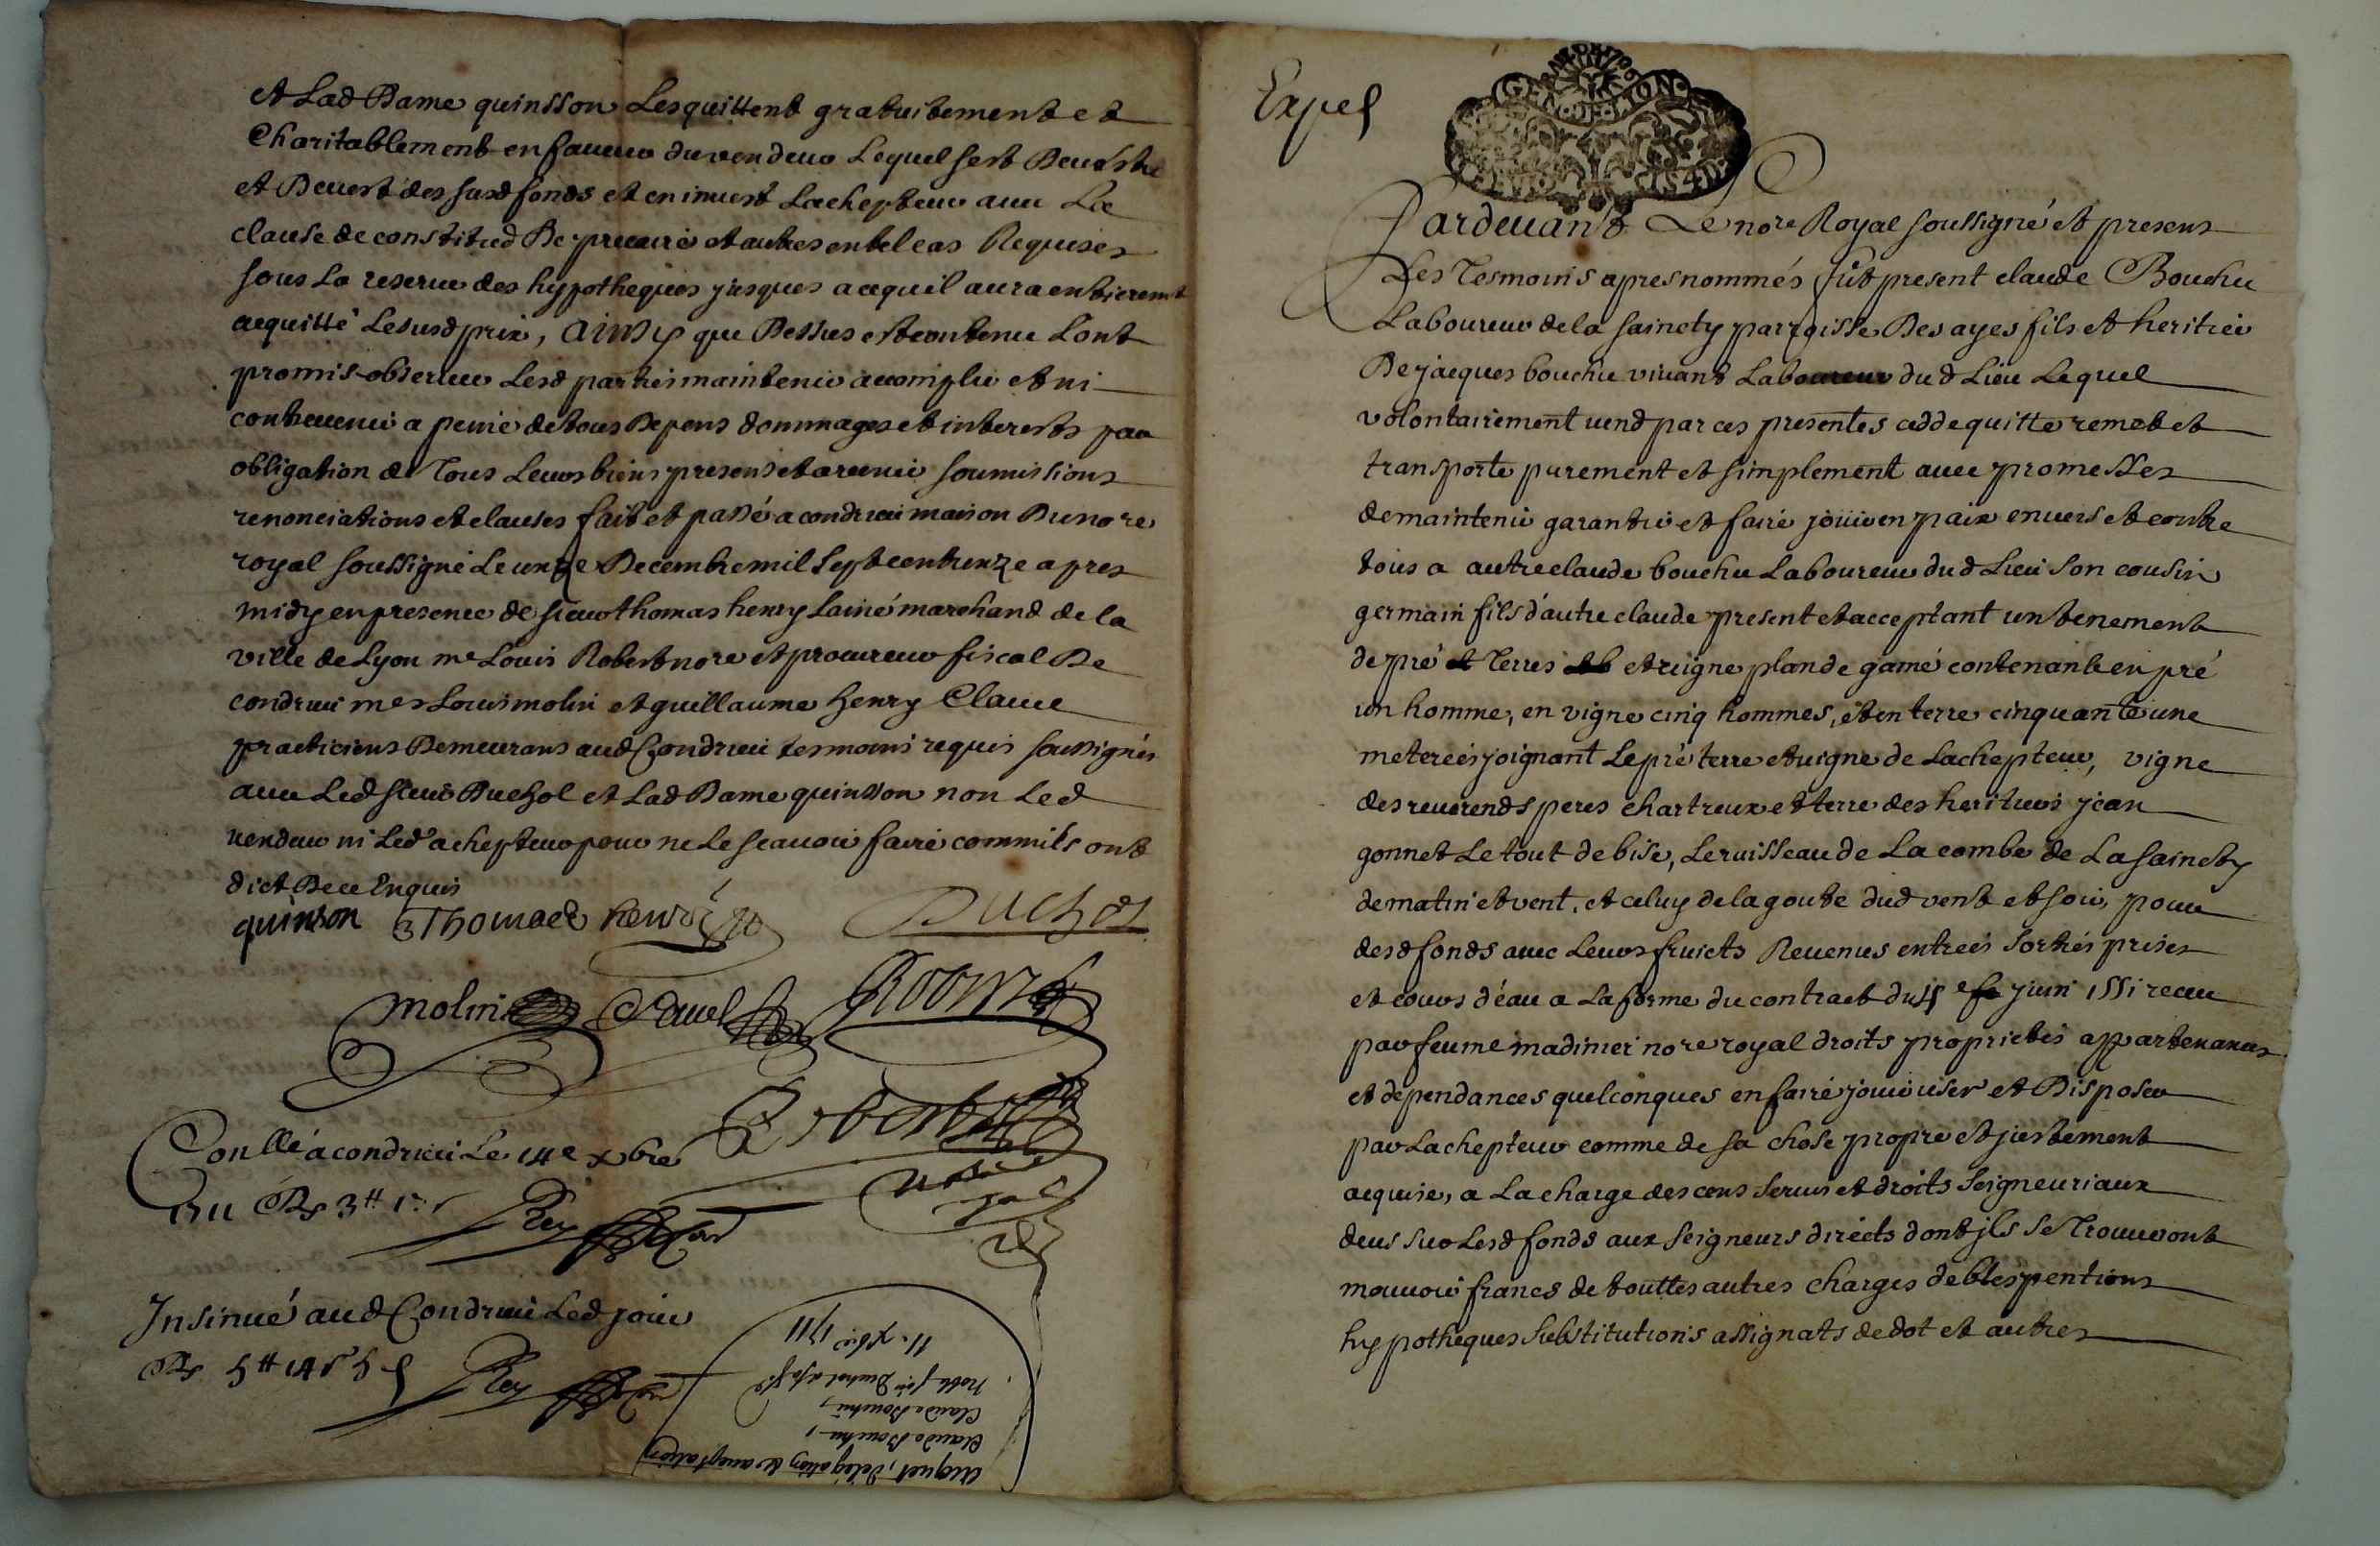 et Lad Dame quinsson Lesquittent gratuitement et
Charitablement en faueur du vendeur Lequel sest Deuestu
et Deuest des susd fonds et en inuest Lachepteur auec La
clause de constitud De precaire et autres en tel cas Requises
sous La reserue des hypotheques jusques a ce quil aura entierem̄t
acquitté Le susd prix, Ainsy que Dessus est contenu Lont
promis obseruer Lesd parties maintenir accomplir et ni
contreuenir a peine de tous Depens dommages et interests par
obligation de Tous Leurs biens presens et aduenir soumissions
renonciations et clauses fait et passé a condrieu maison Du nore
royal soussigné Le unze Decembre mil sept cent unze apres
midy en presence de sieur thomas henry Lainé marchand de la
ville de Lyon me Louis Robert nore et procureur fiscal De
condrieu mes Louis molin et guillaume henry Clauel
practiciens Demeurans aud Condrieu tesmoins requis soussignés
auec Led sieur Duchol et Lad Dame quinsson non Led
vendeur ni Led achepteur pour ne Le scauoir faire comm'ils ont
dict De ce Enquis
quinson Thomaes henri Duchol
molin Clauel Robert
Conllé a condrieu Le 14e xbre
1711 Rs 3tt
Rey
Insinué aud Condrieu Led jour
Rs 5tt 14s 5d
Rey
Acquet, delegation et acceptation
Claude Bouchu
Claude Bouchu
Noble
11e xbre 1711
Exped
GENERALITE DE LYON
Pardeuant Le nore Royal soussigné et presens
Les Tesmoins apres nommés fut present claude Bouchu
Laboureur de la sainety parroisse Des ayes fils et heritier
De jacques bouchu viuant Laboureur dud Lieu Lequel
volontairement uend par ces presentes cedde quitte remet et
transporte purement et simplement auec promesses
de maintenir garantir et faire joüir en paix enuers et contre
tous a autre claude bouchu Laboureur dud Lieu son cousin
germain fils d'autre claude present et acceptant un tenement
de pré et Terres et uigne plan de gamé contenant en pré
un homme, en vigne cinq hommes, et en terre cinquante une
meterées joignant Le pré terre et uigne de Lachepteur, vigne
des reuerends peres chartreux et terre des heritiers jean
gonnet Le tout de bise, Le ruisseau de La combe de La sainety
de matin et vent, et celuy de la goute dud vent et soir, pour
desd fonds auec Leurs fruicts Reuenus entrées sorties prises
et cours d'eau a La forme du contract du juin 1551 receu
par feu me madinier nore royal droits proprietés appartenances
et dependances quelconques en faire jouir user et Disposer
par Lachepteur comme de sa chose propre et justement
acquise, a La charge des cens seruis et droits seigneuriaux
deus sur Lesd fonds aux seigneurs directs dont jls se Trouueront
mouuoir francs de touttes autres charges debtes pentions
hypotheques substitutions assignats de dot et autres